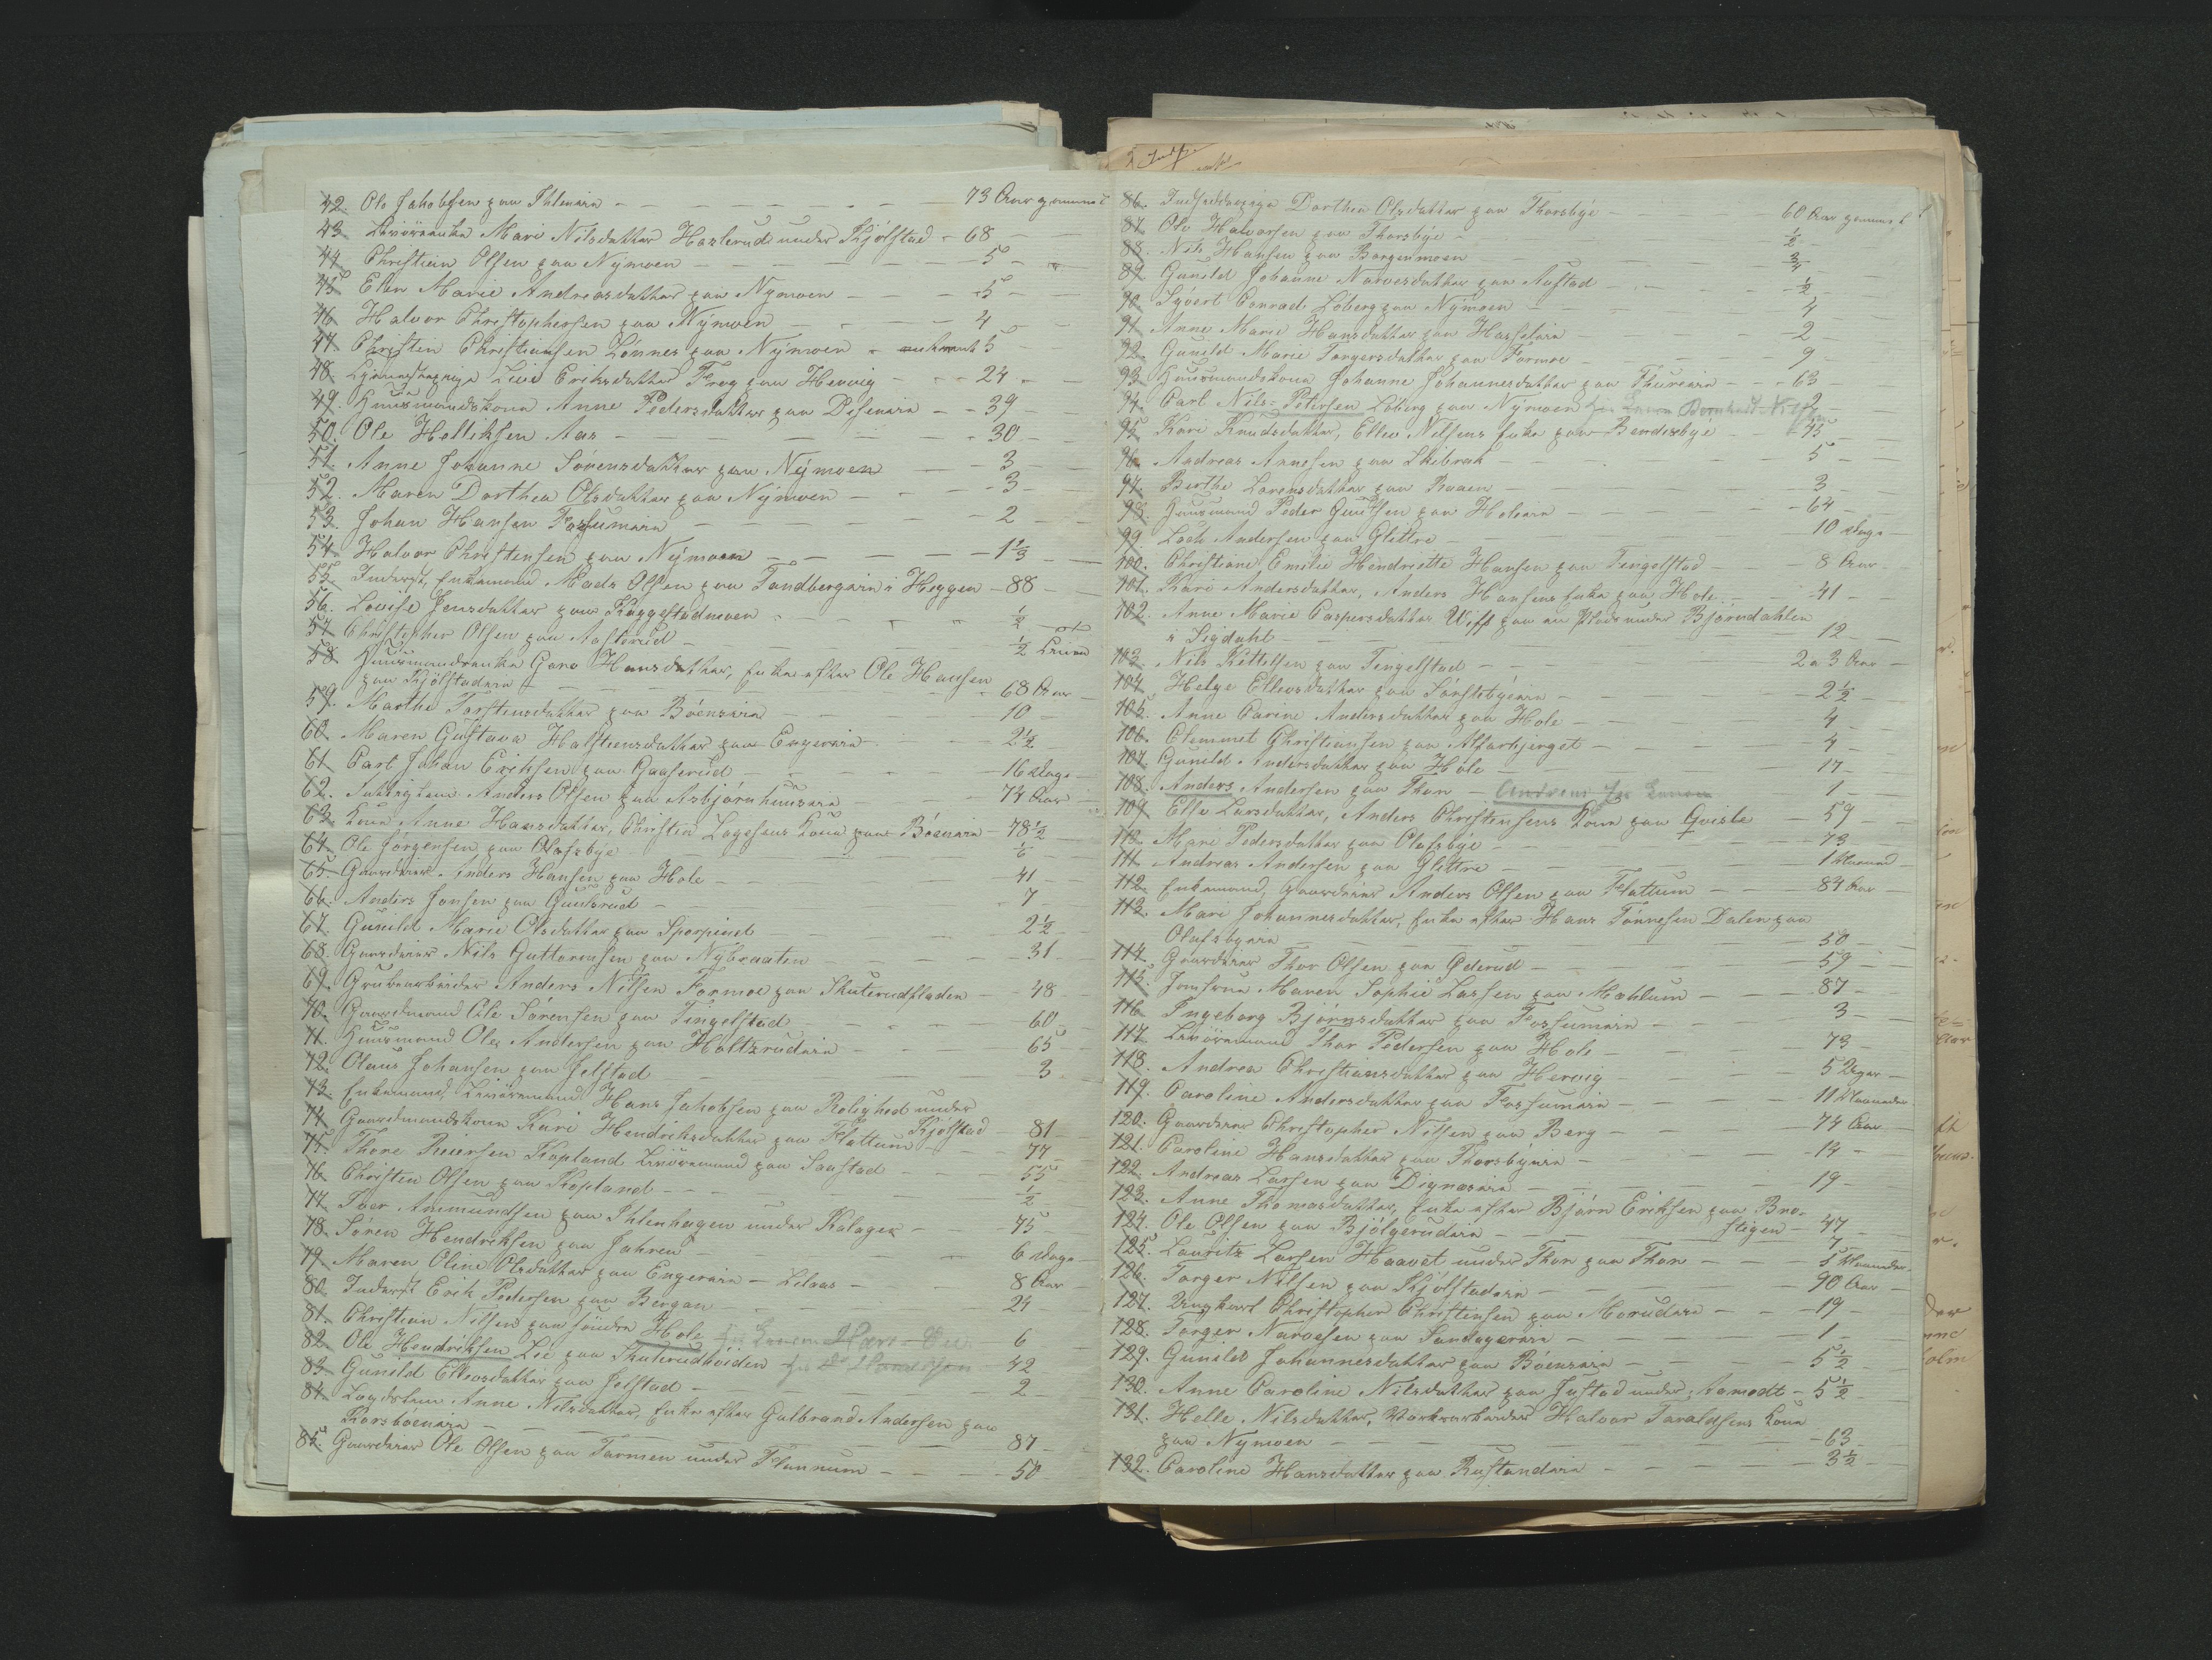 42. Ole Jakobsen paa Ihleneie - 73 Aar gammel
43. Livöreenke Mari Nilsdatter Haslerud under Kjölstad - 68
44. Christian Olsen paa Nymoen - 5
45. Elen Marie Andreasdatter paa Nymoen - 5
46. Halvor Christophersen paa Nymoen - 4
47. Christen Christiansen Lönnes paa Nymoen - 5
48. Erichsdatter Frog paa Hervig - 24
49. Huusmandskone Anne Pedersdatter paa Diseneie - 39
50. Ole Helliksen Aas - 30
51. Anne Johanne Sörensdatter paa Nymoen - 3
52. Maren Dorthea Olsdatter paa Nymoen - 3
53. Johan Hansen Fossumeie - 2
54. Halvor Christensen paa Nymoen - 1 1/3
55. Inderst, Enkemand Mads Olsen paa Sandbergeie i Heggen - 88
56. Lovise Jensdatter paa Kaggestadmoen - 1/2
57. Christopher Olsen paa Aaslerud - 1/2
58. Huusmandsenke Goro Hansdatter, Enke efter Ole Hansen
paa Kjölstadeie - 68 Aar
59. Marthe Torstensdatter paa Böenseie - 10
60. Maren Gustava Halstensdatter paa Engereie - 2 1/2
61. Carl Johan Eriksen paa Gaaserud - 16 Dage
62. Anders Olsen paa Asbjörnhuuseie - 74 Aar
63. Kone Anne Hansdatter, Christen Lagesens Kone paa Böeneie - 78 1/2
64. Ole Jörgensen paa Olafsbye - 1/6
65. Gaardeier Anders Hansen paa Hole - 41
66. Anders Jonsen paa Gunbrud - 7
67. Gunild Marie Olsdatter paa - 2 1/2
68. Gaardeier Nils Guttormsen paa Nybraaten - 31
69. Grubearbeider Anders Nilsen Formoe paa Skuterudfladen - 48
70. Gaardmand Ole Sörensen paa Tingelstad - 60
71. Huusmand Ole Andersen paa Holtzrudeie - 65
72. Olaus Johansen paa Jelstad - 3
73. Enkemand, Livöremand Hans Jakobsen paa Rolighed under
Kjölstad - 81
74. Gaardmandskone Kari Hendriksdatter paa Flattum - 77
75. Thore Reiersen Kopland Livöremand paa Saastad - 55
76. Christen Olsen paa Kopland - 1/2
77. Iver Amundsen paa Ihlenhagen under Kalager - 75
78. Sören Hendriksen paa Jahren - 6 Dage
79. Maren Oline Olsdatter paa Engereie - 8 Aar
80. Inderst Erik Pedersen paa Bergan - 24
81. Christian Nilsen paa söndre Hole - 6
82. Ole Hendriksen Lie paa Skuterudhöiden - 42
83. Gunild Ellevsdatter paa Jelstad - 2
84. Lægdslem Anne Nilsdatter, Enke efter Gulbrand Andersen paa
Korsböeneie - 87
85. Gaardeier Ole Olsen paa Tormen under Flannum - 50
86. Dorthea Olsdatter paa Thorsbye - 60 Aar gammel
87. Ole Halvorsen paa Thorsbye - 1/2
88. Nils Hansen paa Borgenmoen - 3/4
89. Gunild Johanne Narvesdatter paa Aastad - 1/2
90. Syvert Conrad Loberg paa Nymoen - 4
91. Anne Marie Hansdatter paa Hasseleie - 2
92. Gunild Marie Torgersdatter paa Formoe - 9
93. Huusmandskone Johanne Johannesdatter paa Thureeie - 63
94. Carl Nils Petersen Loberg paa Nymoen Bernhard Nilsen 2
95. Kari Knudsdatter, Ellev Nilsens Enke paa Bendixbye - 75
96. Andreas Annesen paa Skibrek - 5
97. Berthe Lorensdatter paa Raaen - 3
98. Huusmand Peder Guulsen paa Holeeie - 64
99. Andersen paa Glittre - 10 Dage
100. Christiane Emilie Hendriette Hansen paa Tingelstad - 8 Aar
101. Kari Andersdatter, Anders Hansens Enke paa Hole - 41
102. Anne Marie Caspersdatter Wiff paa en Plads under Björndahlen
i Sigdahl - 12
103. Nils Kittilsen paa Tingelstad - 2 a 3 Aar
104. Helge Ellevsdatter paa Sönstebyeie - 2 1/2
105. Anne Carine Andersdatter paa Hole - 4
106. Clemmet Christiansen paa Alfarbjerget - 4
107. Gunild Andersdatter paa Hole - 17
108. Anders Andersen paa Thon - Andreas - 1
109. Elle Larsdatter, Anders Christensens Kone paa Qvisle - 59
110. Mari Pedersdatter paa Olafsbye - 73
111. Andreas Andersen paa Glittre - 1 Maaned
112. Enkemand, Gaardeier Anders Olsen paa Flattum - 84 Aar
113. Mari Johannesdatter, Enke efter Hans Tönnesen Dalen paa
Olafsbyeie - 50
114. Gaardeier Thor Olsen paa Öderud - 59
115. Jomfrue Maren Sophie Lassen paa Mæhlum - 87
116. Ingeborg Björnsdatter paa Fossumeie - 3
117. Livöremand Thor Pedersen paa Hole - 73
118. Andrea Christiansdatter paa Hervig - 5 Uger
119. Caroline Andersdatter paa Fossumeie - 11 Maaneder
120. Gaardeier Christopher Nilsen paa Berg - 74 Aar
121. Caroline Hansdatter paa Thorsbyeie - 14
122. Andreas Larsen paa Digneseie - 19
123. Anne Thomasdatter, Enke efter Björn Eriksen paa Bro-
stigen - 47
124. Ole Olsen paa Bjölgerudeie - 7
125. Lauritz Larsen Haavet under Thon paa Thon - 5 Maaneder
126. Torger Nilsen paa Kjölstadeie - 90 Aar
127. Ungkarl Christopher Christensen paa Morudeie - 19
128. Torger Narvesen paa Sandagereie - 1
129. Gunild Johannesdatter paa Böenseie - 5 1/2
130. Anne Caroline Nilsdatter paa Justad under Aamodt - 5 1/2
131. Helle Nilsdatter, Værksarbeider Halvor Taraldsens Kone
paa Nymoen - 63
132. Caroline Hansdatter paa Rustandeie - 3 1/2